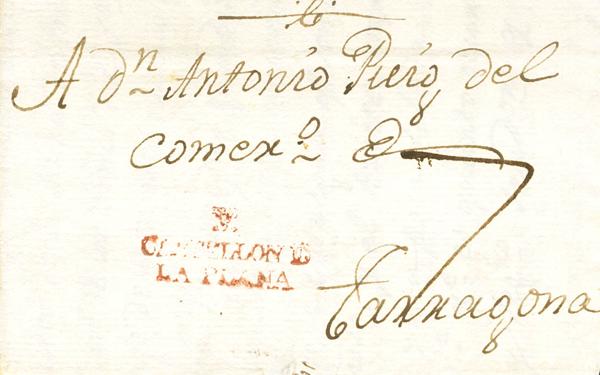 A dⁿ Antonio Puig del
comerᵒ
CASTELLON DE
LA PLANA
Tarragona